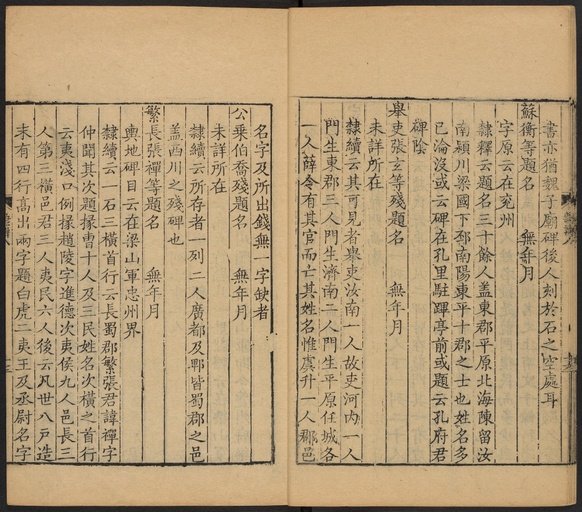 書亦猶魏子廟碑後人刻於石之空處耳
蘇衡等題名　無年月
字原云在兖州
隷釋云題名三十餘人蓋東郡平原北海陳留汝
南潁川梁國下邳南陽東平十郡之士也姓名多
已淪沒或云碑在孔里駐蹕亭前或題云孔府君
碑陰
舉吏張玄等殘題名　無年月
未詳所在
隷續云其可見者舉吏汝南一人故吏河内一人
門生東郡三人門生濟南二人門生平原任城各
一人薛令有其官而亡其姓名惟虞升一人郡邑
名字及所出錢無一字缺者
公乘伯喬殘題名　無年月
未詳所在
隷續云所存者一列二人廣都及郫皆蜀郡之邑
蓋西川之殘碑也
繁長張禪等題名　無年月
輿地碑目云在梁山軍忠州界
隷續云一石三橫首行云長蜀郡繁張君諱禪字
仲聞其次題掾曹十人及三民姓名次橫之首行
云夷淺口例掾趙陵字進德次夷侯九人邑長三
人第三橫邑君三人夷民六人後云凡世八戸造
末有四行高出兩字題白虎二夷王及丞尉名字